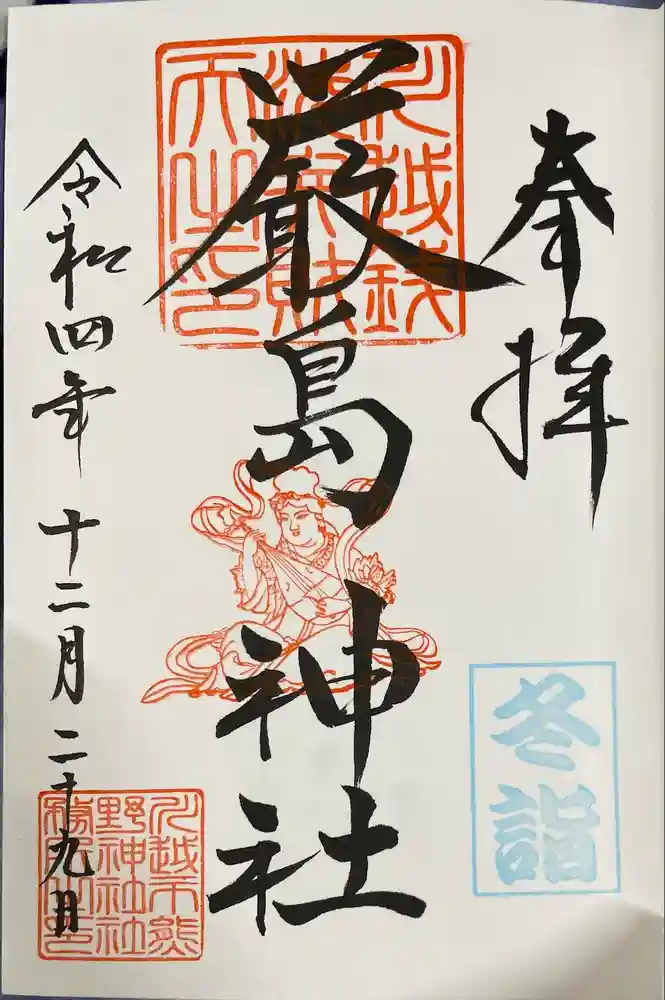 奉拝
冬詣
川越銭
洗弁財
天之印
厳島神社
令和四年 十二月 二十九日
川越市熊
野神社社
務所之印